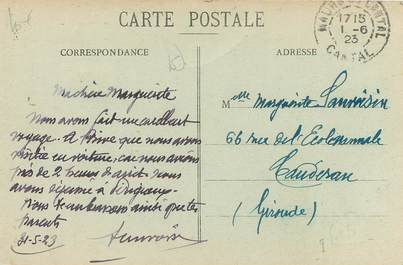 CARTE POSTALE
CORRESPONDANCE
ADRESSE
CANTAL
17 15
1 - 6
23
CANTAL
Ma chère Marguerite
Nous avons fait un excellent
voyage. A Brive que nous avons
visitée en voiture, car nous avons
pas de 2 heures d'arrêt. nous
avons déjeuné à
Nous t'embrassons ainsi que tes
parents
31-5-23
Mlle Marguerite
66 rue de l'Ecole normale
Caudéran
(Gironde)